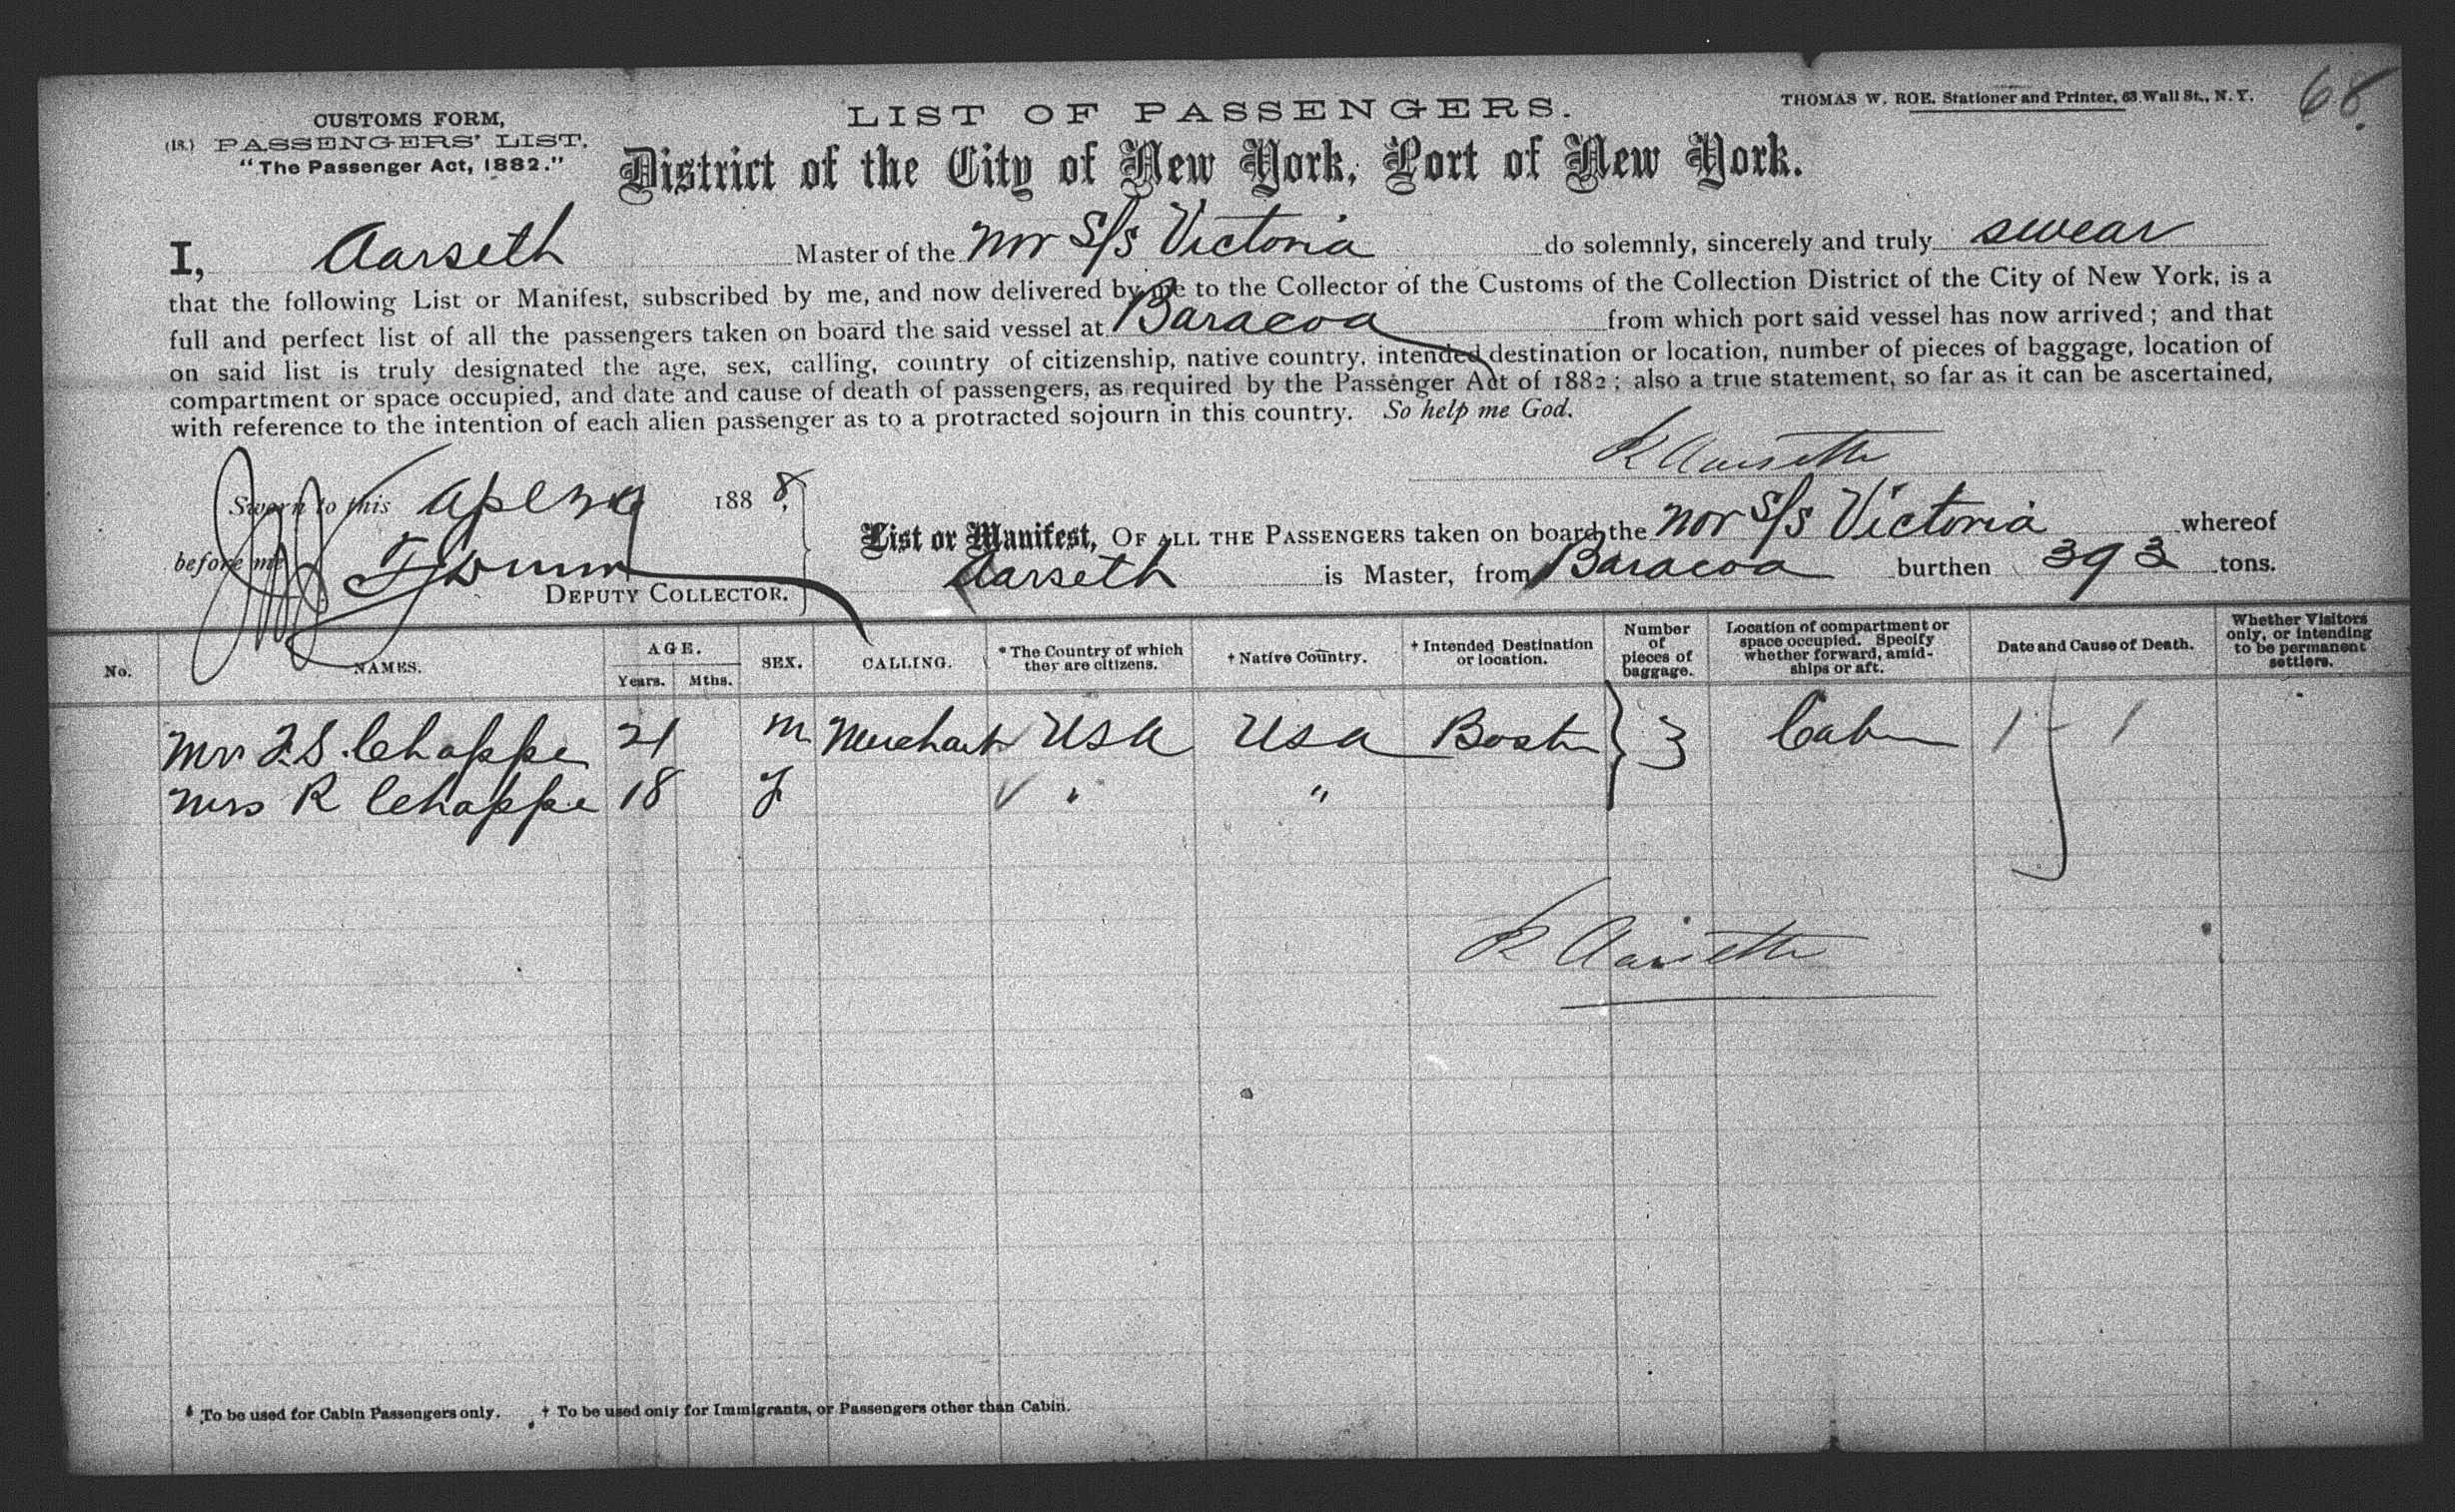 68.
CUSTOMS FORM,
(18.) PASSENGERS' LIST,
"The Passenger Act, 1882."
LIST OF PASSENGERS.
THOMAS W. ROE, Stationer and Printer, 63 Wall St., N. Y.
District of the City of New York, Port of New York.
I, Aarseth Master of the Nor S/S Victoria do solemnly, sincerely and truly swear
that the following List or Manifest, subscribed by me, and now delivered by me to the Collector of the Customs of the Collection District of the City of New York, is a
full and perfect list of all the passengers taken on board the said vessel at Baracoa from which port said vessel has now arrived; and that
on said list is truly designated the age, sex, calling, country of citizenship, native country, intended destination or location, number of pieces of baggage, location of
compartment or space occupied, and date and cause of death of passengers, as required by the Passenger Act of 1882; also a true statement, so far as it can be ascertained,
with reference to the intention of each alien passenger as to a protracted sojourn in this country. So help me God.
K Aarseth
Sworn to this 1888,
before me
DEPUTY COLLECTOR.
List or Manifest, OF ALL THE PASSENGERS taken on board the Nor S/S Victoria whereof
Aarseth is Master, from Baracoa burthen 393 tons.
No. NAMES. AGE. Years. Mths. SEX. CALLING. * The Country of which they are citizens. † Native Country. † Intended Destination or location. Number of pieces of baggage. Location of compartment or space occupied. Specify whether forward, amidships or aft. Date and Cause of Death. Whether Visitors only, or intending to be permanent settlers.
Mr F.S. Chappe 21 M Merchant USA USA Boston 3 Cabin 1 1
Mrs R Chappe 18 F " "
K Aarseth
* To be used for Cabin Passengers only. † To be used only for Immigrants, or Passengers other than Cabin.